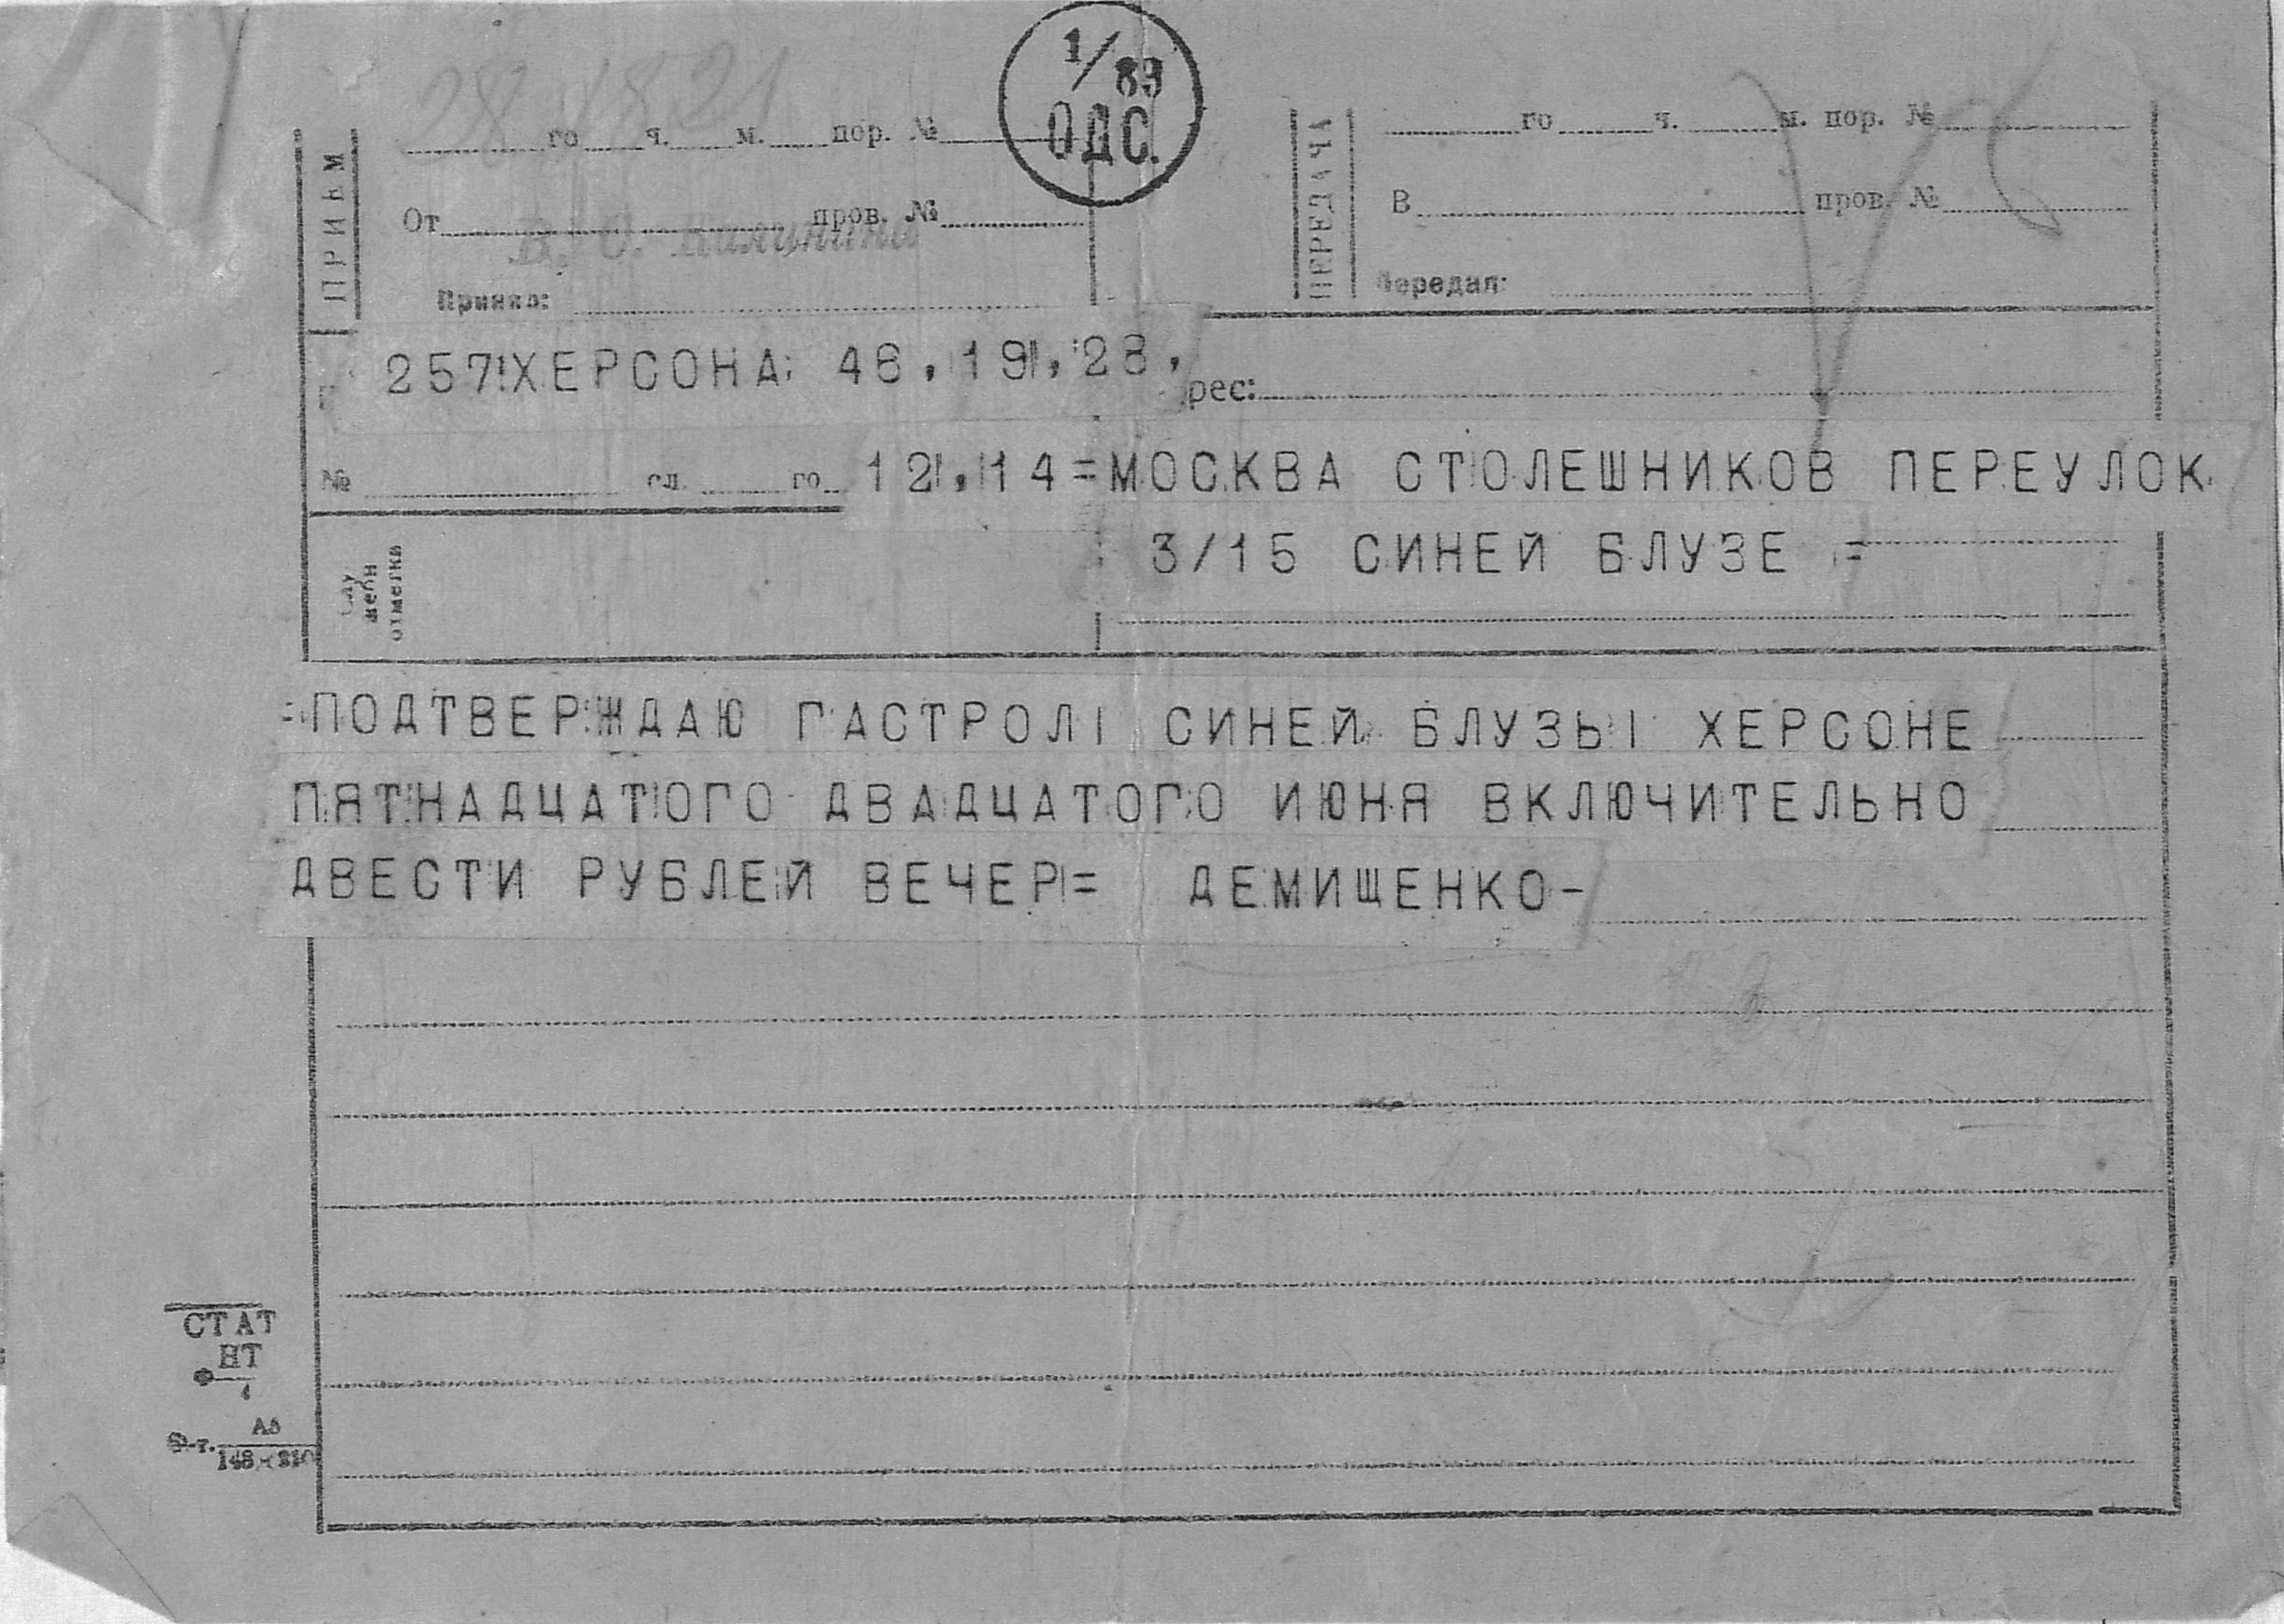 1/89
ОДС.
го ч. м. пор. №
го ч. м. пор. №
ПРИЕМ
ПЕРЕДАЧА
От пров. №
В пров. №
Принял:
Передал:
257 ХЕРСОНА 46, 19, 28,
рес:
№ сл. го 12, 14 = МОСКВА СТОЛЕШНИКОВ ПЕРЕУЛОК
3/15 СИНЕЙ БЛУЗЕ =
отметки
=ПОДТВЕРЖДАЮ ГАСТРОЛІ СИНЕЙ БЛУЗЫ ХЕРСОНЕ
ПЯТНАДЦАТОГО ДВАДЦАТОГО ИЮНЯ ВКЛЮЧИТЕЛЬНО
ДВЕСТИ РУБЛЕЙ ВЕЧЕР= ДЕМИЩЕНКО-
СТАТ
НТ
Ф-т. А5
148×210